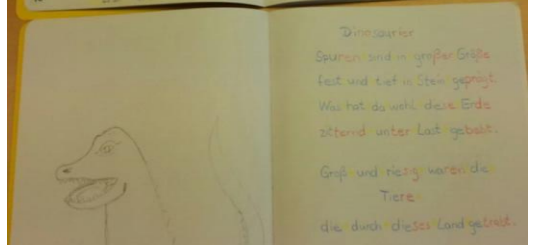 Dinnsaurier
Spuren sind in großer Größe
fest und tief in Stein geprägt.
Was hat da wohl diese Erde
zitternd unter Last gebebt.
Groß und riesig waren die
Tiere
die durch dieses Land getrabt.